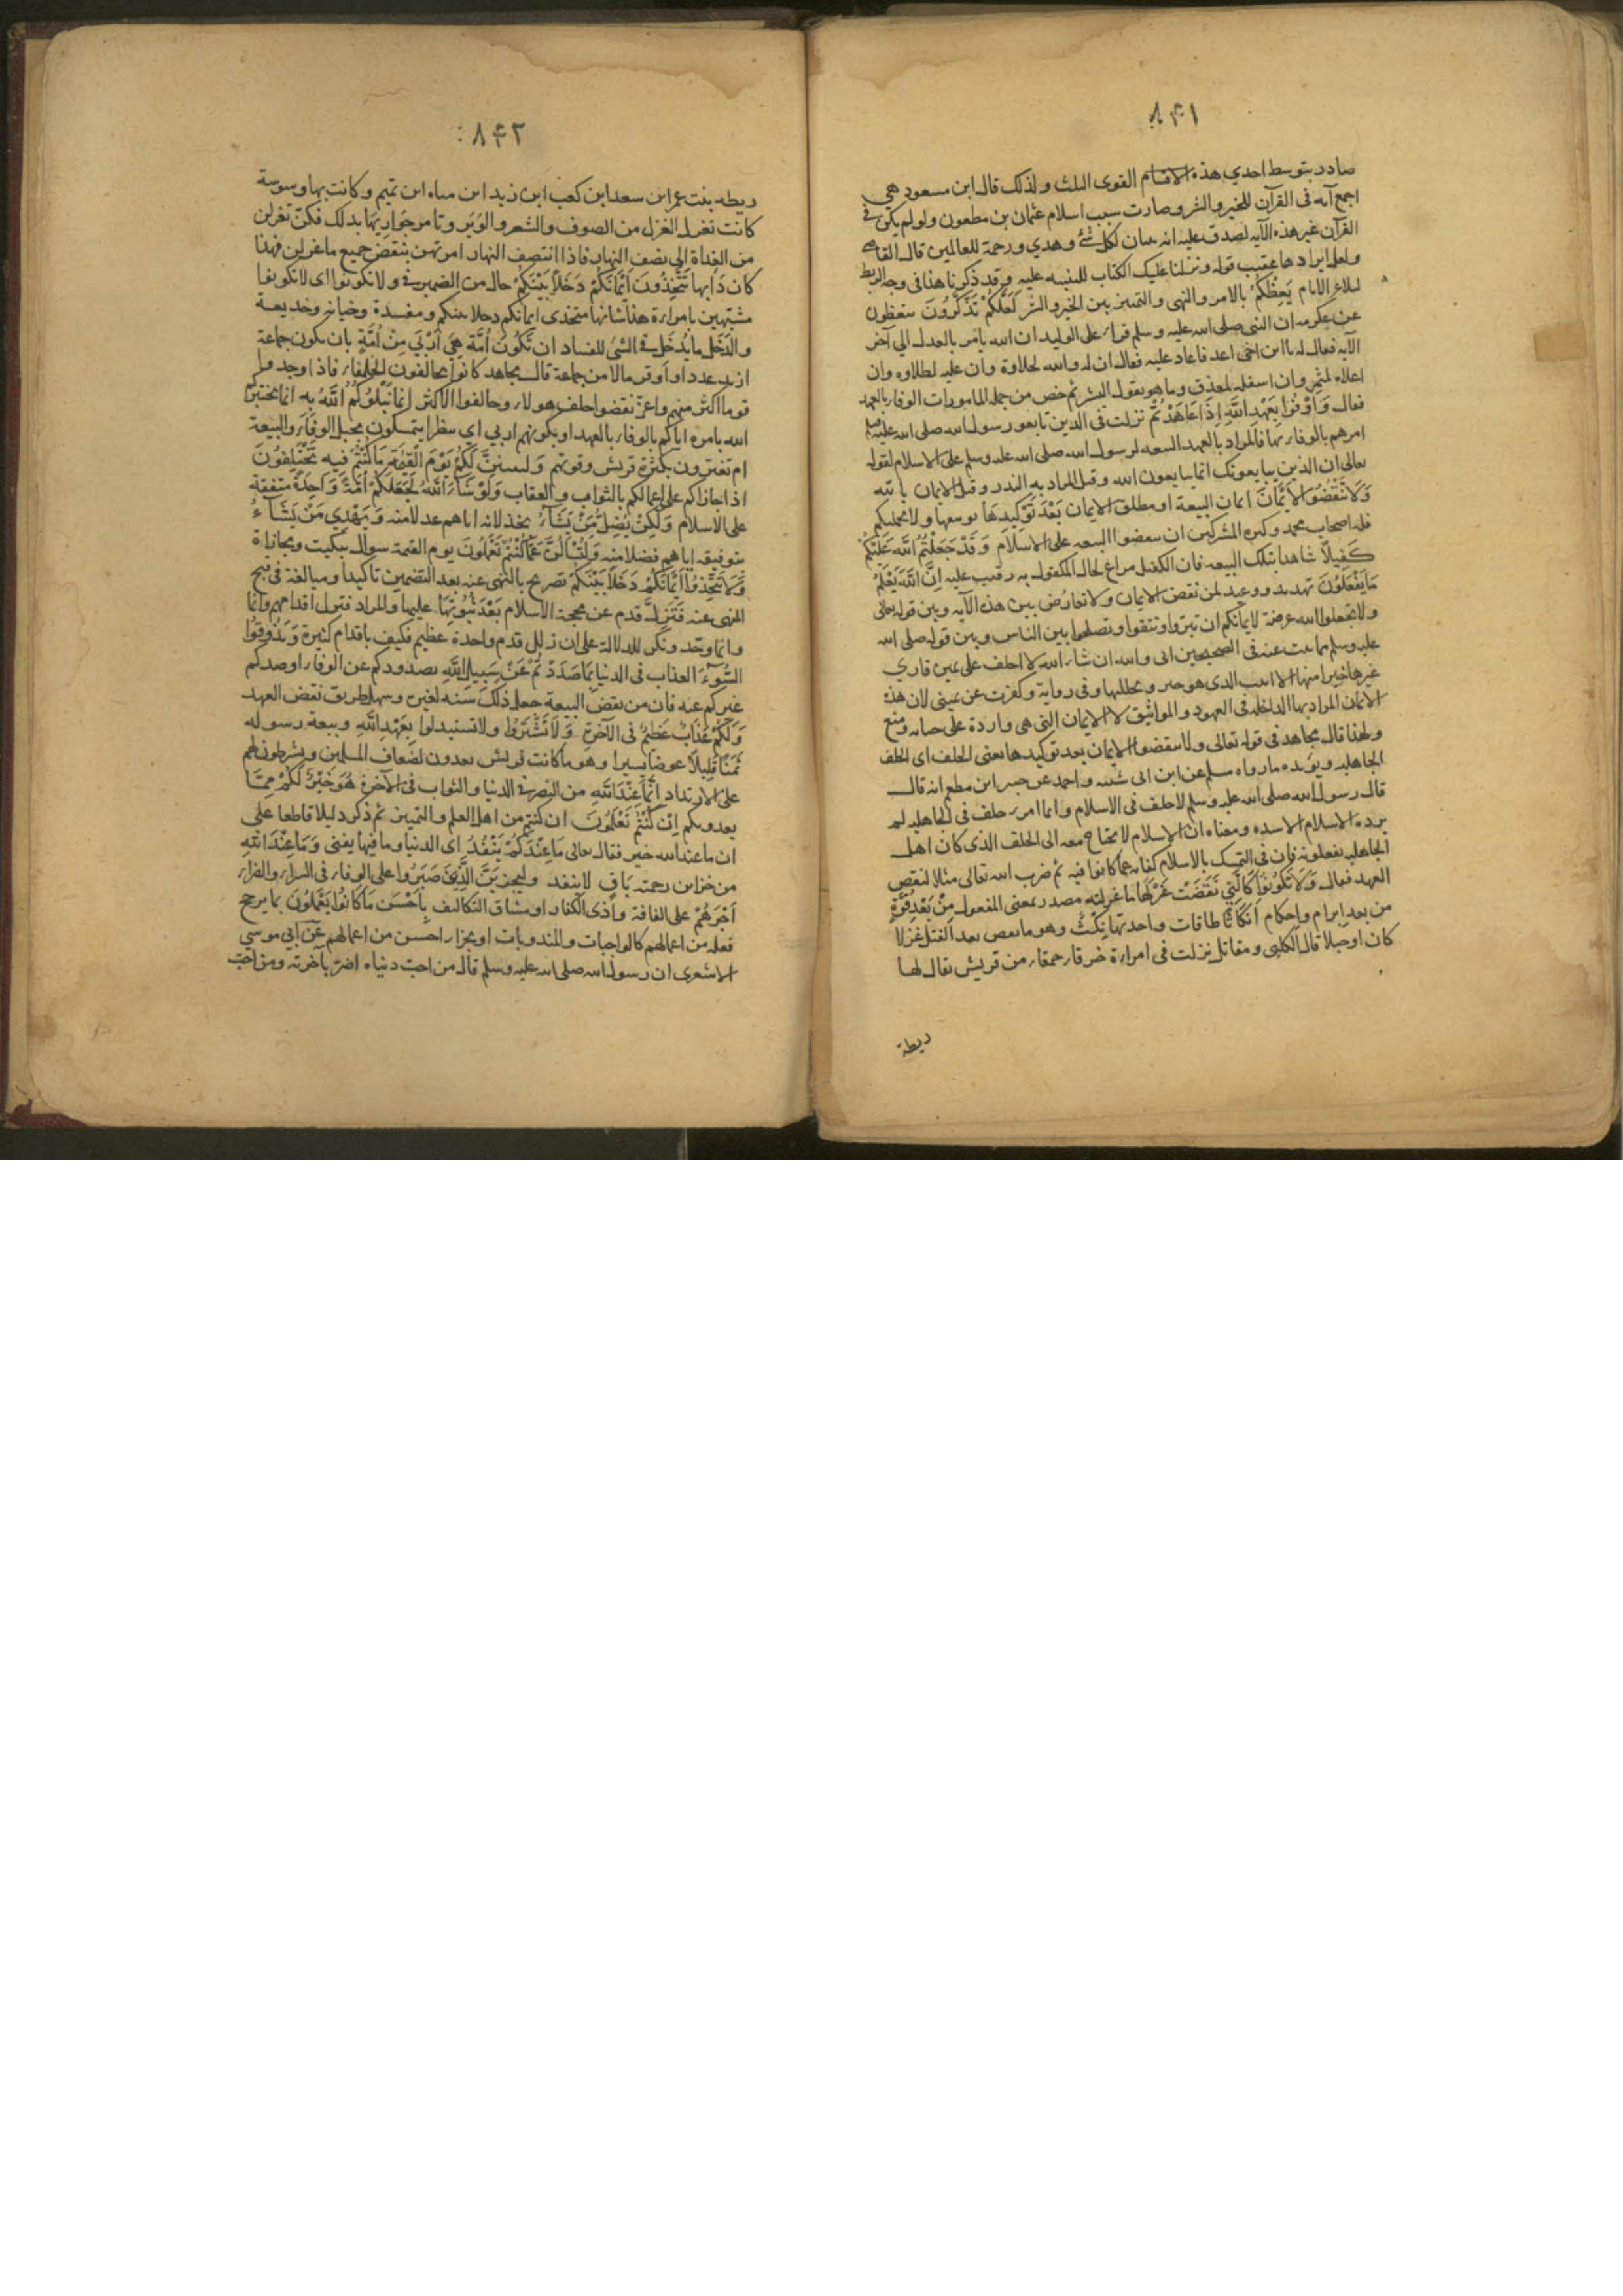 ٨٤١
صادر بتوسط احدي هذه الاقسام القوى الثلث ولذلك قال ابن مسعود هي
اجمع آية فى القرآن للخير والشر وصارت سبب اسلام عثمان بن مظعون ولو لم يكن فى
القرآن غير هذه الآية لصدق عليه انه تبيان لكل شئ وهدي ورحمة للعالمين قال القاضي
ولعل ايرادها عقيب قوله ونزلنا عليك الكتاب للتنبيه عليه وقد ذكرنا هذا فى وجه الربط
يَعِظُكُمْ بالامر والنهى والتمييز بين الخير والشر لَعَلَّكُمْ تَذَكَّرُونَ تتعظون
عن عكرمه ان النبى صلى الله عليه وسلم قرأ على الوليد ان الله يأمر بالعدل الي آخر
الآيه فقال له يا ابن اخى اعد فاعاد عليه فقال ان له والله لحلاوة وان عليه لطلاوه وان
اعلاه لمثمر وان اسفله لمغدق وما هو بقول البشر ثم خص من جمله المامورات الوفاء بالعهد
فقال وَاَوْفُوا بِعَهْدِ اللَّهِ اِذَا عَاهَدْتُمْ نزلت فى الذين بايعو رسول الله صلى الله عليه وسلم
امرهم بالوفاء بها فالمراد بالعهد البيعه لرسول الله صلى الله عليه وسلم على الاسلام لقوله
تعالى ان الذين يبايعونك انما يبايعون الله وقيل المراد به النذر وقيل الايمان بالله
وَلَا تَنْقُضُوا الْاَيْمَانَ ايمان البيعة او مطلق الايمان بَعْدَ تَوْكِيدِهَا توسعها ولا يحملكم
قله اصحاب محمد وكثره المشركين ان تنقضوا البيعه على الاسلام وَقَدْ جَعَلْتُمُ اللَّهَ عَلَيْكُمْ
كَفِيلاً شاهدا بتلك البيعه فان الكفيل مراع لحال المكفول به رقيب عليه اِنَّ اللَّهَ يَعْلَمُ
مَا تَفْعَلُونَ تهديد ووعيد لمن نقض الايمان ولا تعارض بين هذه الآيه وبين قوله تعالى
ولا تجعلوا الله عرضة لايمانكم ان تبروا وتتقوا وتصلحوا بين الناس وبين قوله صلى الله
عليه وسلم مما ثبت عنه فى الصحيحين انى والله ان شاء الله لا احلف على يمين فاري
غيرها خيرا منها الا اتيت الذى هو خير وتحللتها وفى رواية وكفرت عن يمينى لان هذه
الايمان المراد بها الداخله فى العهود والمواثيق لا الايمان التى هى واردة على حث او منع
ولهذا قال مجاهد فى قوله تعالى ولا تنقضوا الايمان بعد توكيدها يعنى الحلف اى الحلف
الجاهليه ويؤيده ما رواه مسلم عن ابن ابى شيبه واحمد عن جبير ابن مطعم انه قال
قال رسول الله صلى الله عليه وسلم لا حلف فى الاسلام وايما امرء حلف فى الجاهليه لم
يزده الاسلام الا شده ومعناه ان الاسلام لا يحتاج معه الى الحلف الذى كان اهل
الجاهليه يفعلونه فان فى التمسك بالاسلام كفايه عما كانوا فيه ثم ضرب الله تعالى مثالا لنقض
العهد فقال وَلَا تَكُونُوا كَالَّتِي نَقَضَتْ غَزْلَهَا ما غزلته مصدر بمعنى المفعول مِنْ بَعْدِ قُوَّةٍ
من بعد ابرام واحكام اَنْكَاثًا طاقات واحدتها نِكْث وهو ما نقض بعد الفتل غزلا
كان اوحبلا قال الكلبى ومقاتل نزلت فى امرأة خرقاء حمقاء من قريش يقال لها
ريطة
٨٤٢
ريطه بنت عمر ابن سعد ابن كعب ابن زيد ابن مناه ابن تميم وكانت بها وسوسة
كانت تغزل الغزل من الصوف والشعر والوبر وتأمر جواريها بذلك فكن تغزلن
من الغداة الى نصف النهار فاذا انتصف النهار امرتهن بنقض جميع ما غزلن فهذا
كان دأبها تَتَّخِذُونَ اَيْمَانَكُمْ دَخَلاً بَيْنَكُمْ حال من الضمير فى ولا تكونوا اى لا تكونوا
مشبهين بامرأة هذا شانها متخذى ايمانكم دخلا بينكم ومفسدة وخيانة وخديعة
والدخل ما يُدخل فى الشئ للفساد ان تَكُونَ اُمَّةٌ هِيَ اَرْبَي مِنْ اُمَّةٍ بان تكون جماعة
ازيد عددا واوفر مالا من جماعة قال مجاهد كانوا يحالفون الحلفاء فاذا وجدوا
قوما اكثر منهم واعز نقضوا حلف هولاء وحالفوا الاكثر اِنَّمَا يَبْلُوكُمُ اللَّهُ بِهِ انما يختبركم
الله بامره اياكم بالوفاء بالعهد او بكونهم اربي اي ينظر اتتمسكون بحبل الوفاء والبيعة
ام تغترون بكثرة قريش وقوتهم وَلَيُبَيِّنَنَّ لَكُمْ يَوْمَ الْقِيمَةِ مَا كُنْتُمْ فِيهِ تَخْتَلِفُونَ
اذا جازاكم على اعمالكم بالثواب والعقاب وَلَوْ شَاءَ اللَّهُ لَجَعَلَكُمْ اُمَّةً وَاحِدَةً متفقة
على الاسلام وَلَكِنْ يُضِلُّ مَنْ يَشَآءُ بخذلانه اياهم عدلا منه وَيَهْدِي مَنْ يَشَآءُ
بتوفيقه اياهم فضلا منه وَلَتُسْأَلُنَّ عَمَّا كُنْتُمْ تَعْمَلُونَ يوم القيمة سوال تبكيت ومجازاة
وَلَا تَتَّخِذُوا اَيْمَانَكُمْ دَخَلاً بَيْنَكُمْ تصريح بالنهى عنه بعد التضمين تاكيدا ومبالغة فى قبح
المنهى عنه فَتَزِلَّ قدم عن محجة الاسلام بَعْدَ ثُبُوتِهَا عليها والمراد فتزل اقدامهم وانما
وانما وحد ونكر للدلالة على ان زلل قدم واحدة عظيم فكيف باقدام كثيرة وَتَذُوقُوا
السُّوءَ العذاب فى الدنيا بِمَا صَدَدْتُمْ عَنْ سَبِيلِ اللَّهِ بصدودكم عن الوفاء او صدكم
غيركم عنه فان من نقض البيعة جعل ذلك سنه لغيره وسهل طريق نقض العهد
وَلَكُمْ عَذَابٌ عَظِيمٌ فى الآخرة وَلَا تَشْتَرُوا ولا تستبدلوا بِعَهْدِ اللَّهِ وبيعة رسوله
ثَمَنًا قَلِيلاً عوضا يسيرا وهو ما كانت قريش يعدون لضعاف المسلمين ويشرطون لهم
على الارتداد اِنَّمَا عِنْدَ اللَّهِ من النصر فى الدنيا والثواب فى الآخرة هُوَ خَيْرٌ لَكُمْ مِمَّا
يعدونكم اِنْ كُنْتُمْ تَعْلَمُونَ ان كنتم من اهل العلم والتمييز ثم ذكر دليلا قاطعا على
ان ما عند الله خير فقال تعالى مَا عِنْدَكُمْ يَنْفَدُ اى الدنيا وما فيها يفنى وَمَا عِنْدَ اللَّهِ
من خزائن رحمته بَاقٍ لا ينفد وليجزينّ الَّذِينَ صَبَرُوا على الوفاء فى السراء والضراء
اَجْرَهُمْ على الفاقة واذى الكفار او مشاق التكاليف بِاَحْسَنِ مَا كَانُوا يَعْمَلُونَ بما يرجح
فعله من اعمالهم كالواجبات والمندوبات او بجزاء احسن من اعمالهم عن ابى موسي
الاشعرى ان رسول الله صلى الله عليه وسلم قال من احب دنياه اضر بآخرته ومن احب